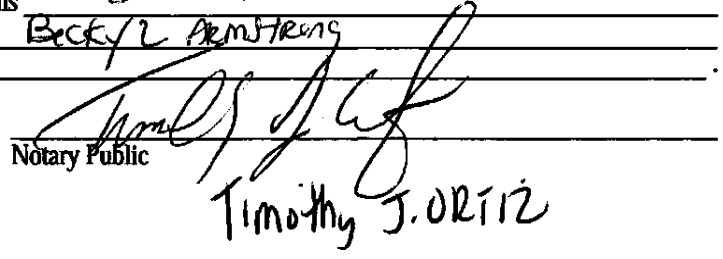 Becky L Armstrong
Notary Public
Timothy J. ORTIZ